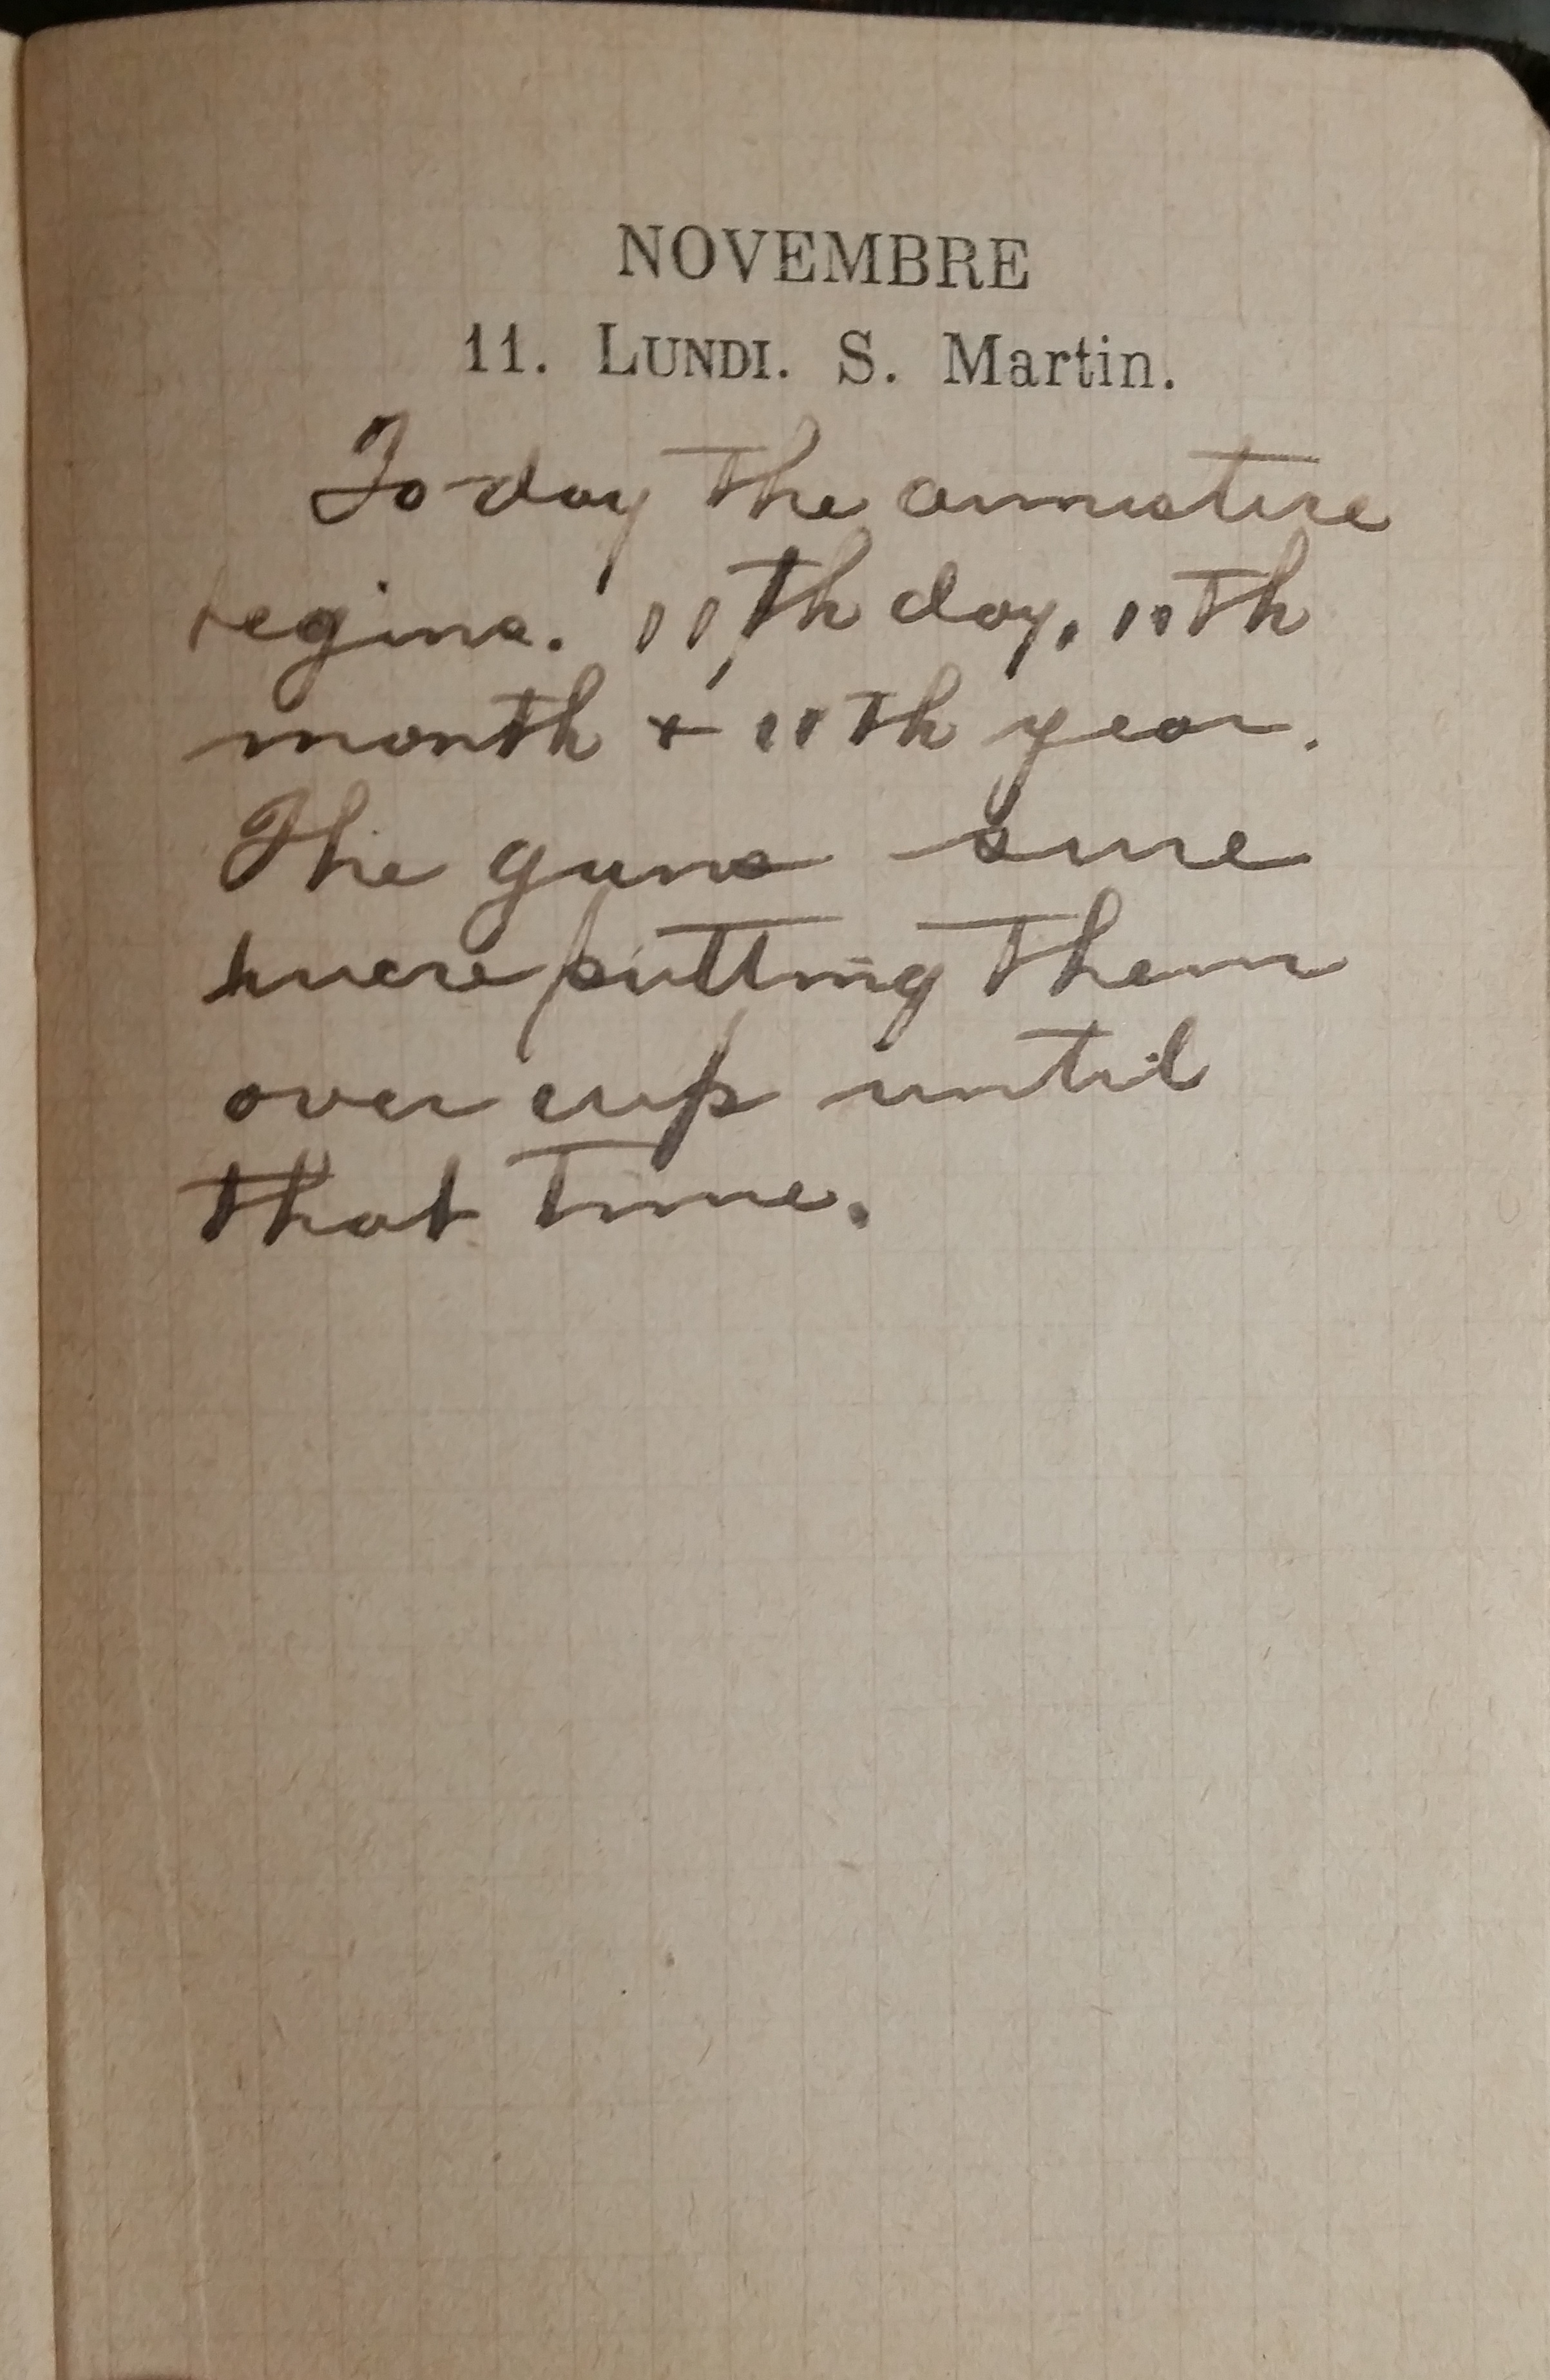 NOVEMBRE
11. LUNDI. S. Martin.
To day the armistice
begins. 11th day, 11th
month + 11th year.
The guns sure
were putting them
over up until
that time.